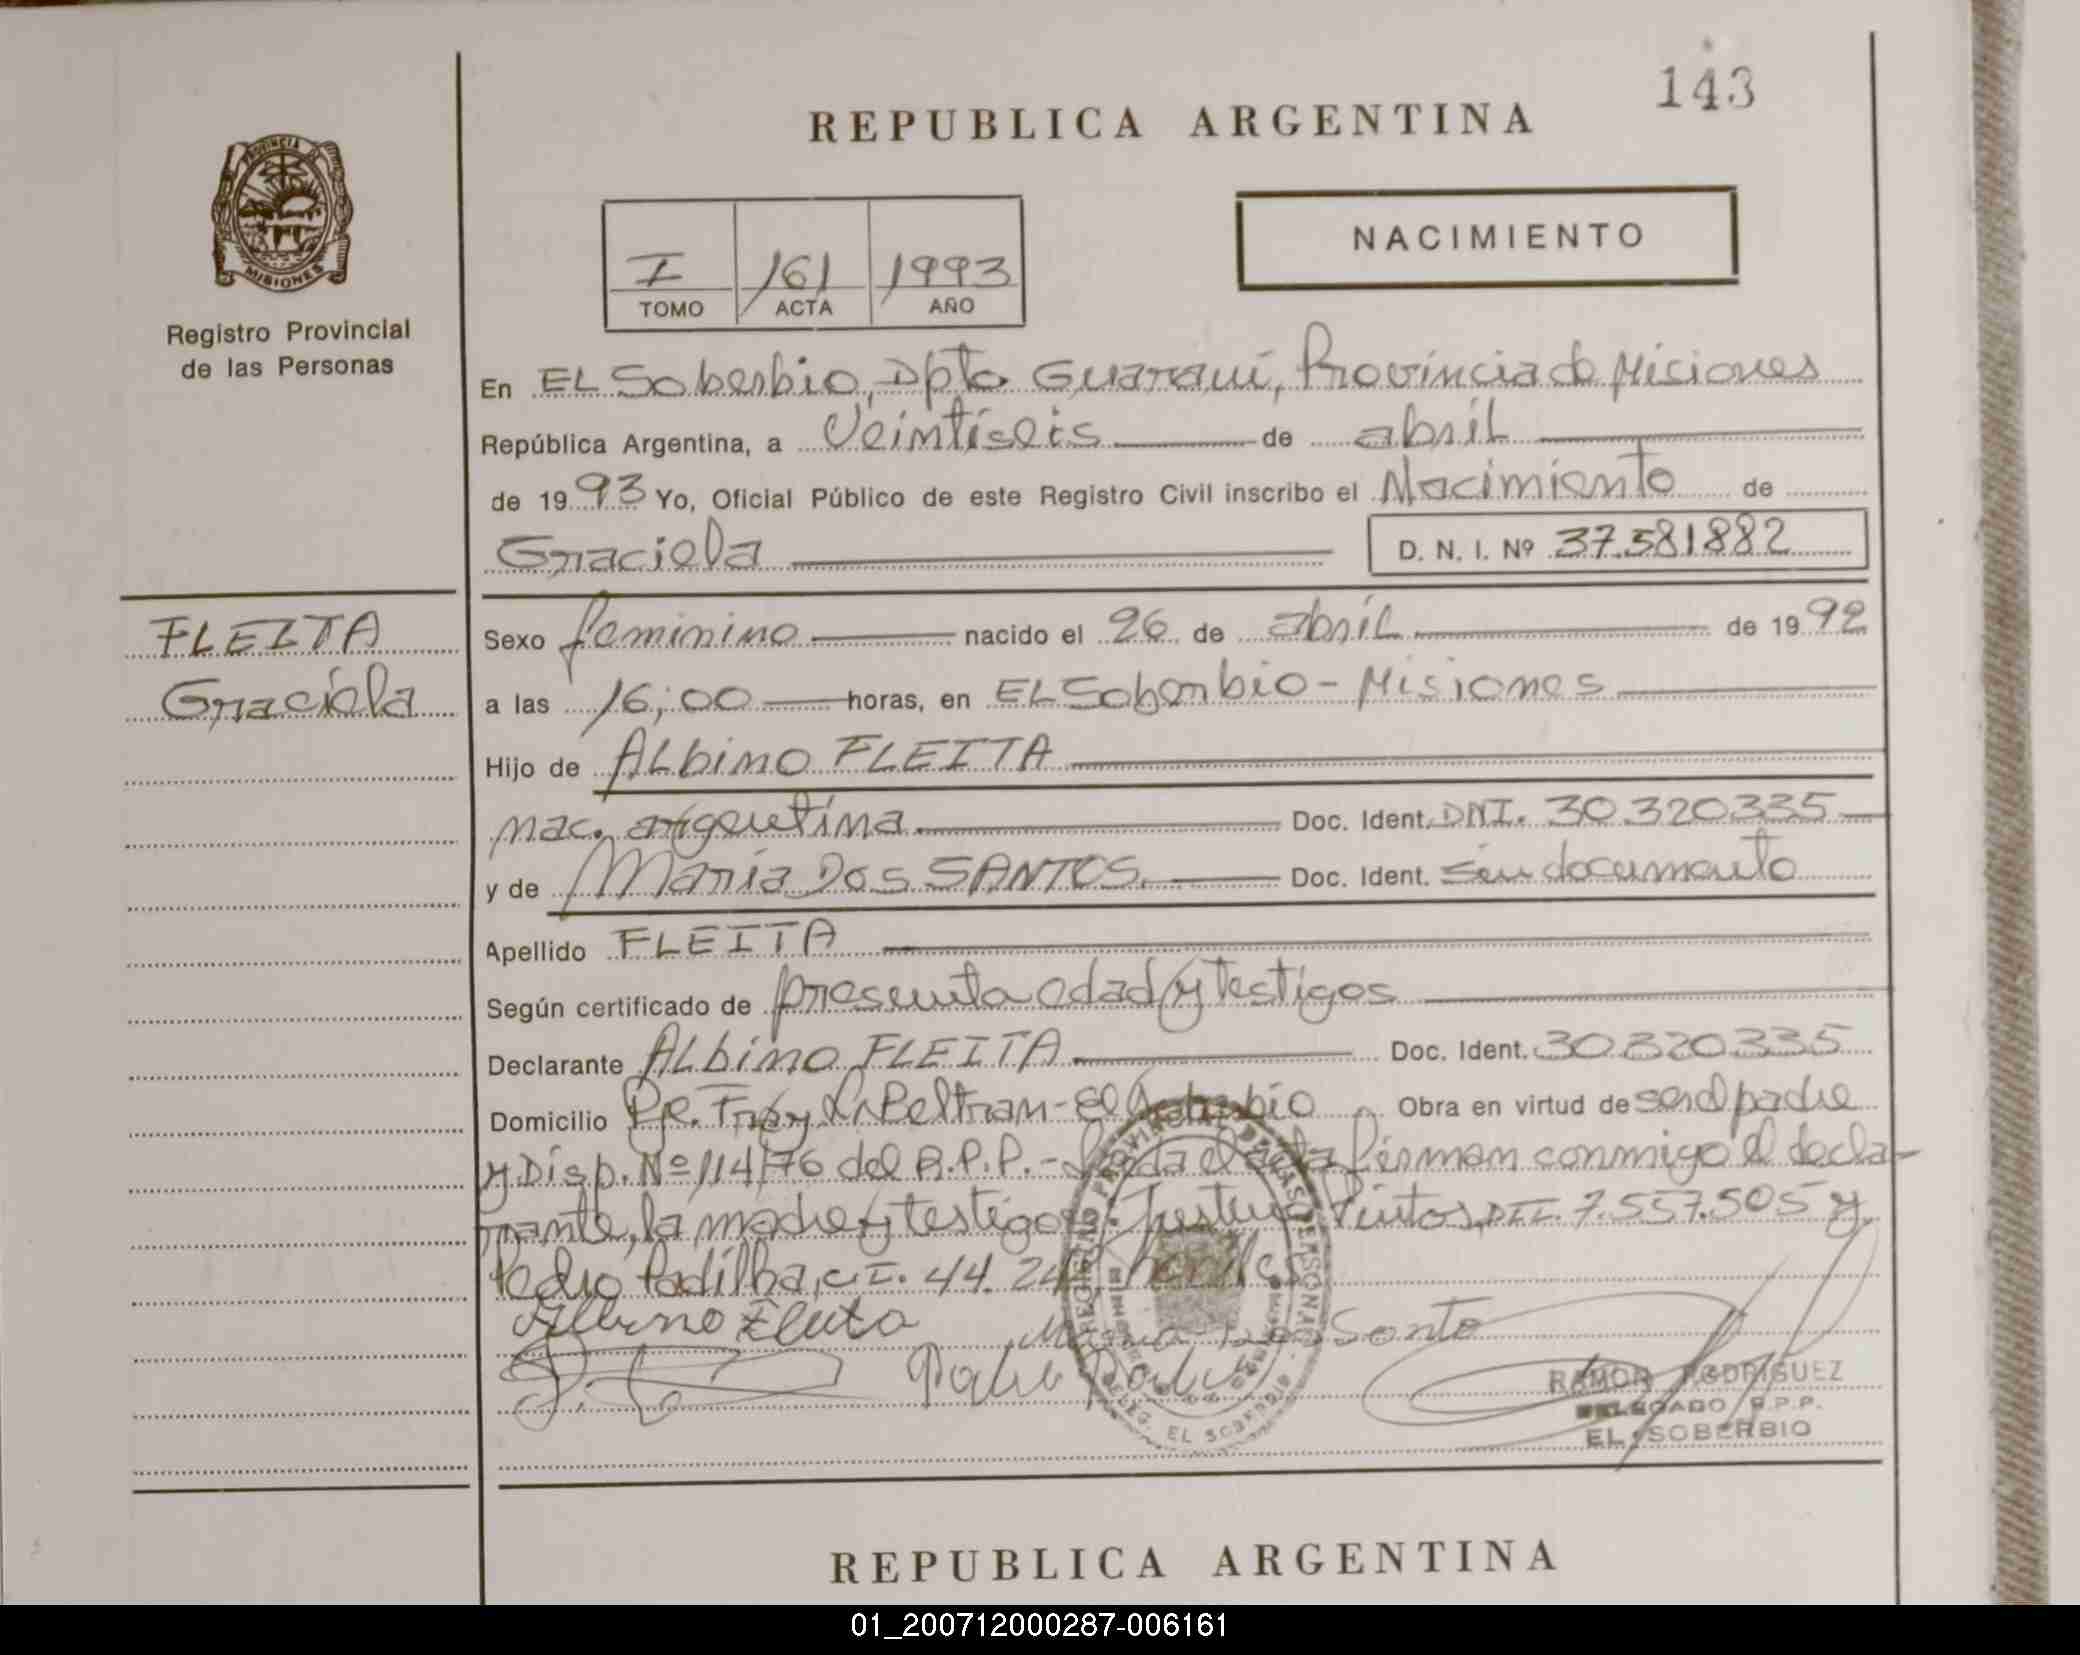 143
REPUBLICA ARGENTINA
PROVINCIA DE
MISIONES
Registro Provincial
de las Personas
NACIMIENTO
I 161 1993
TOMO ACTA AÑO
En EL Soberbio, Dpto Guaraní, Provincia de Misiones
República Argentina, a Veintiseis de abril
de 1993 Yo, Oficial Público de este Registro Civil inscribo el Nacimiento de
Graciela D. N. I. Nº 37.581882
FLEITA
Graciela
Sexo femenino nacido el 26 de abril de 1992
a las 16;00 horas, en EL Soberbio - Misiones
Hijo de ALbino FLEITA
nac. argentina Doc. Ident. DNI. 30.320335
y de Maria Dos SANTOS Doc. Ident. sin documento
Apellido FLEITA
Según certificado de presunta edad y testigos
Declarante ALbino FLEITA Doc. Ident. 30320335
Domicilio Pje. Fray L. Beltran - El Soberbio Obra en virtud de ser el padre
y Disp. Nº 114/76 del R.P.P. - Leida el acta firman conmigo el decla-
rante, la madre y testigos: Pintos, 7.557.505 y
Pedro Padilha, C.I. 44.
Albino Fleita Dos Santo
REGISTRO PROVINCIAL DE LAS PERSONAS
DELEG. EL SOBERBIO
RAMON RODRIGUEZ
DELEGADO R.P.P.
EL SOBERBIO
REPUBLICA ARGENTINA
01_200712000287-006161